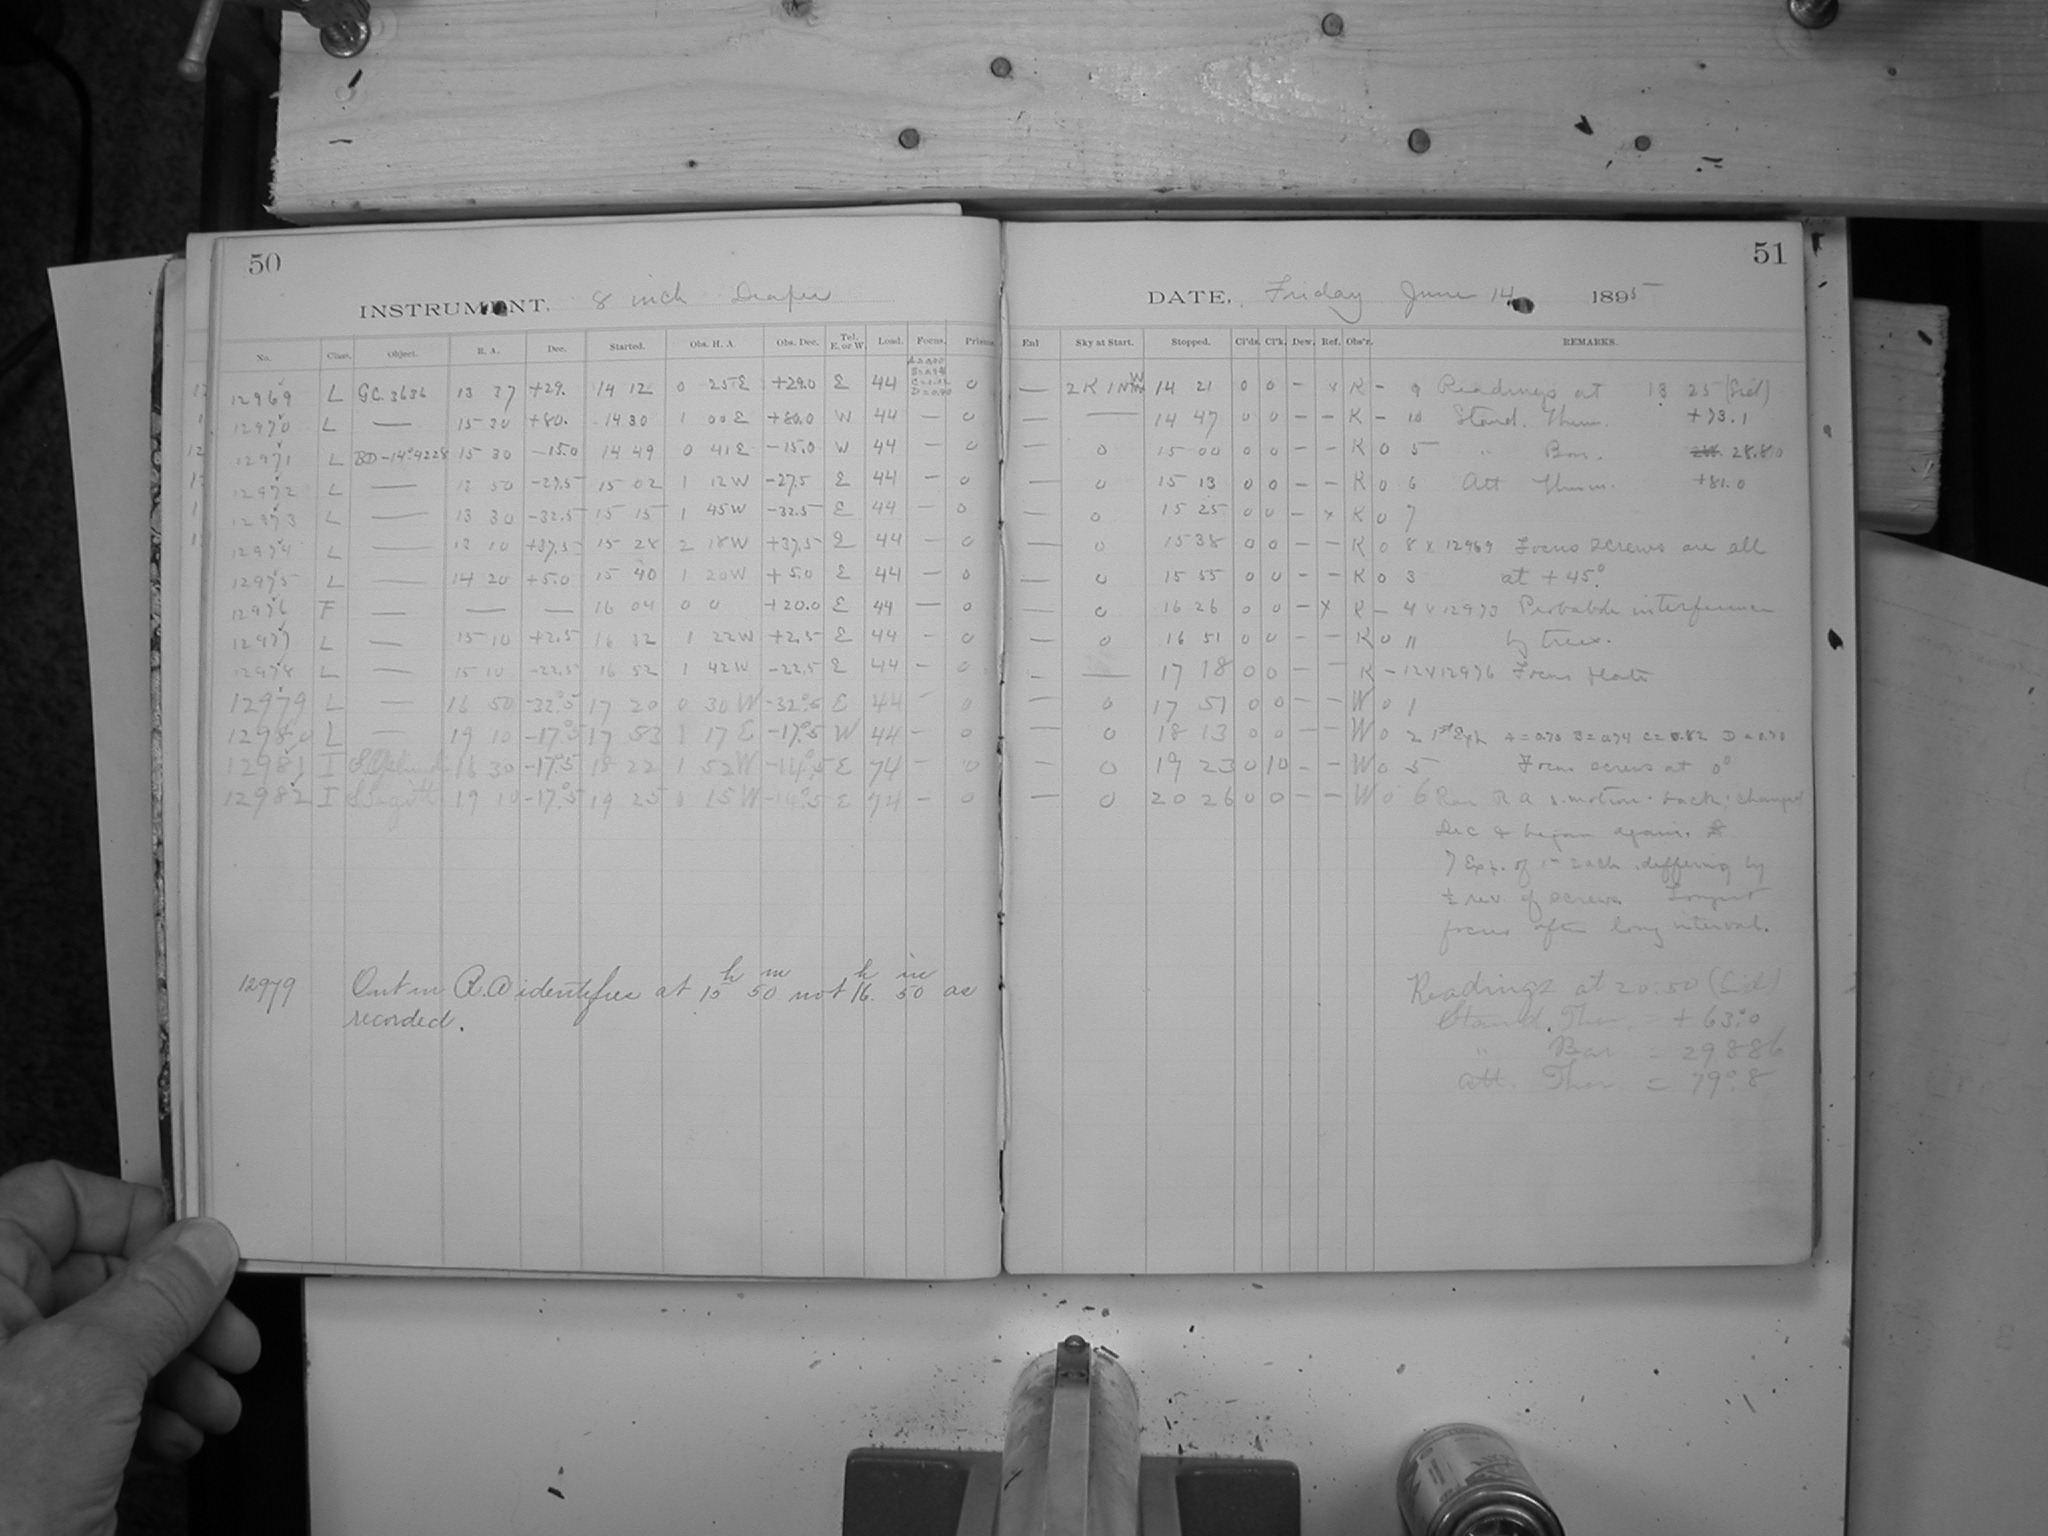 50
INSTRUMENT, 8 inch Draper
No. Class. Object. R. A. Dec. Started. Obs. H. A. Obs. Dec. Tel. E. or W. Load. Focus. Prisms
12969 L GC. 3636 13 37 +29. 14 12 0 25 E +29.0 E 44 0
12970 L — 15 30 +80. 14 30 1 00 E +80.0 W 44 — 0
12971 L BD -14°4228 15 30 -15.0 14 49 0 41 E -15.0 W 44 — 0
12972 L — 13 50 -27.5 15 02 1 12 W -27.5 E 44 — 0
12973 L — 13 30 -32.5 15 15 1 45 W -32.5 E 44 — 0
12974 L — 13 10 +37.5 15 28 2 18 W +37.5 E 44 — 0
12975 L — 14 20 +5.0 15 40 1 20 W +5.0 E 44 — 0
12976 F — — — 16 04 0 0 +20.0 E 44 — 0
12977 L — 15 10 +2.5 16 32 1 22 W +2.5 E 44 — 0
12978 L — 15 10 -22.5 16 52 1 42 W -22.5 E 44 — 0
12979 L — 16 50 -32°.5 17 20 0 30 W -32°.5 E 44 — 0
12980 L — 19 10 -17°.5 17 53 1 17 E -17°.5 W 44 — 0
12981 I 16 30 -17°.5 18 22 1 52 W -14°.5 E 74 — 0
12982 I 19 10 -17°.5 19 25 0 15 W -14°.5 E 74 — 0
12979 Out in R.A identifies at 15h 50m not 16h 50m as
recorded.
51
DATE, Friday June 14 1895
Enl Sky at Start. Stopped. Cl'ds. Cl'k. Dew. Ref. Obs'r. REMARKS.
— 14 21 0 0 — x K — 9 Readings at 13 25 (Sid)
— — 14 47 0 0 — — K — 10 Stand. Thum. +73.1
— 0 15 00 0 0 — — K 0 5 " Bar. 28.810
— 0 15 13 0 0 — — K 0 6 Att Thum. +81.0
— 0 15 25 0 0 — x K 0 7
— 0 15 38 0 0 — — K 0 8 x 12969 Focus screws are all
— 0 15 55 0 0 — — K 0 3 at +45°.
— 0 16 26 0 0 — x K — 4 x 12973 Probable interference
— 0 16 51 0 0 — — K 0 11 by trees.
— 17 18 0 0 — — K — 12 x 12976 Focus plate
— 0 17 51 0 0 — — W 0 1
— 0 18 13 0 0 — — W 0 2 1st Exp. A = 0.70 B = 0.74 C = 0.82 D = 0.70
— 0 19 23 0 10 — — W 0 5 Focus screws at 0°
— 0 20 26 0 0 — — W 0 6 Ran R A s. motion back; changed
Dec & began again.
7 Exp. of 1m each differing by
½ rev. of screws. Longest
focus after long interval.
Readings at 20:50 (Sid)
Stand. Ther. = +63°.0
" Bar = 29.886
Att. Ther = 79°.8